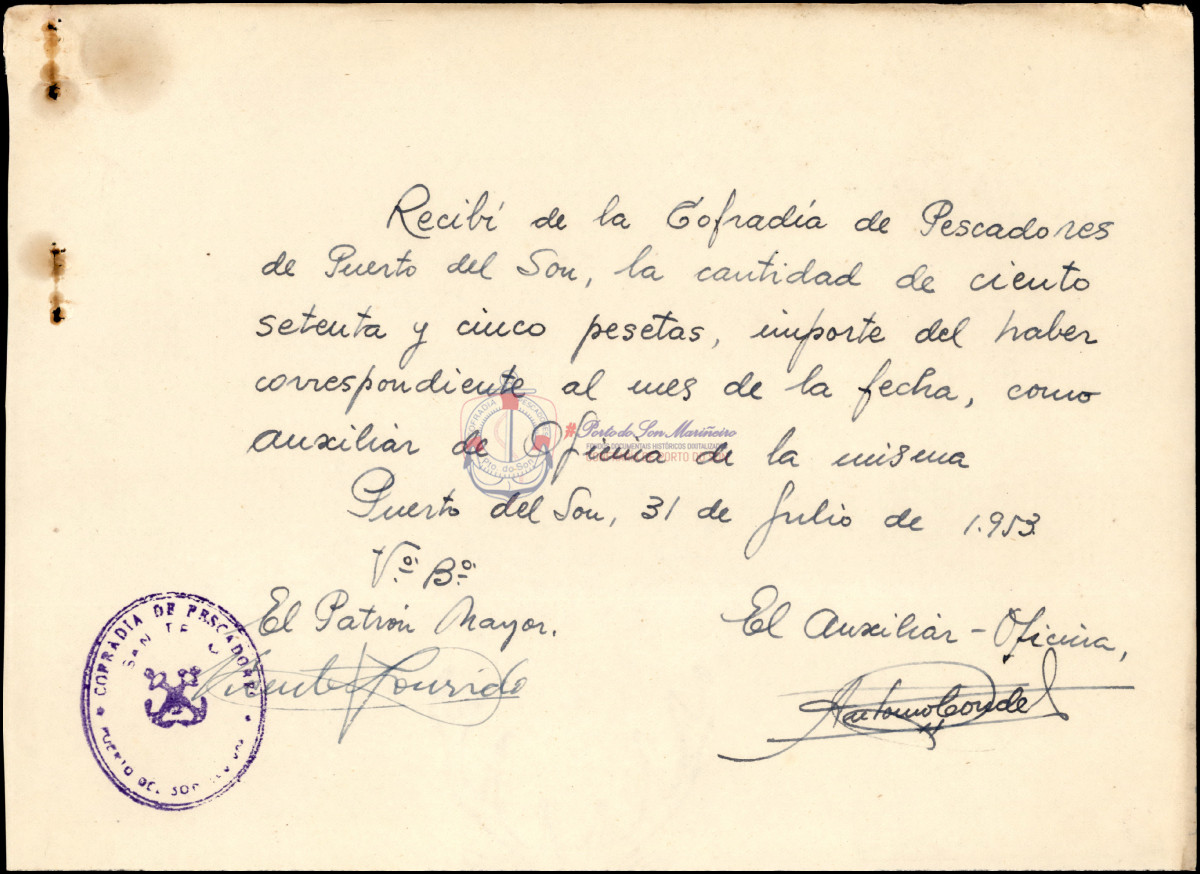 Recibí de la Cofradía de Pescadores
de Puerto del Son, la cantidad de ciento
setenta y cinco pesetas, importe del haber
correspondiente al mes de la fecha, como
auxiliar de Oficina de la misma
Puerto del Son, 31 de Julio de 1.953.
Vº Bº
El Patrón Mayor.
El Auxiliar-Oficina,
Antonio Conde
COFRADIA DE PESCADORES
PUERTO DEL SON
COFRADIA PESCADORES
Pto. do Son
#Porto do Son Mariñeiro